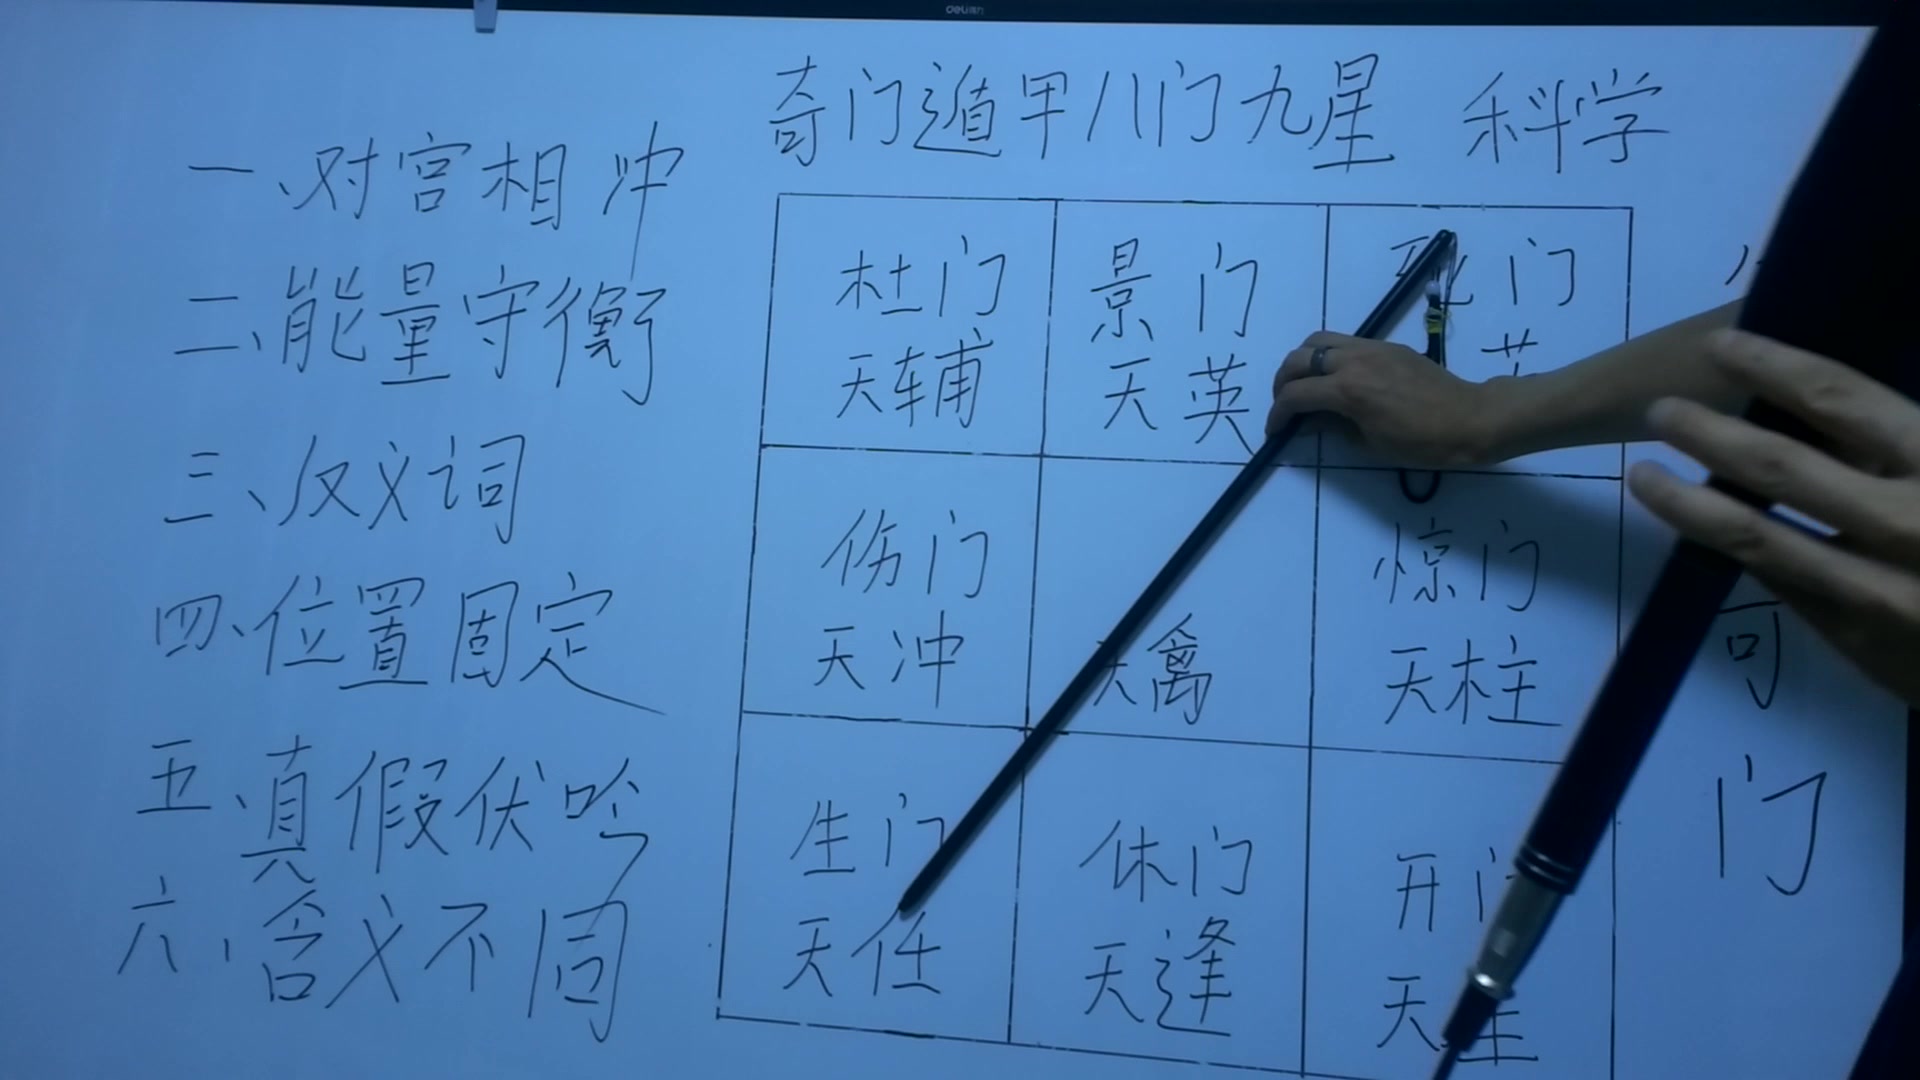 deli得力
奇门遁甲八门九星 科学
一、对宫相冲
二、能量守衡
三、反义词
四、位置固定
五、真假伏吟
六、含义不同
杜门
天辅
景门
天英
死门
伤门
天冲
天禽
惊门
天柱
生门
天任
休门
天逢
开门
天
可
门